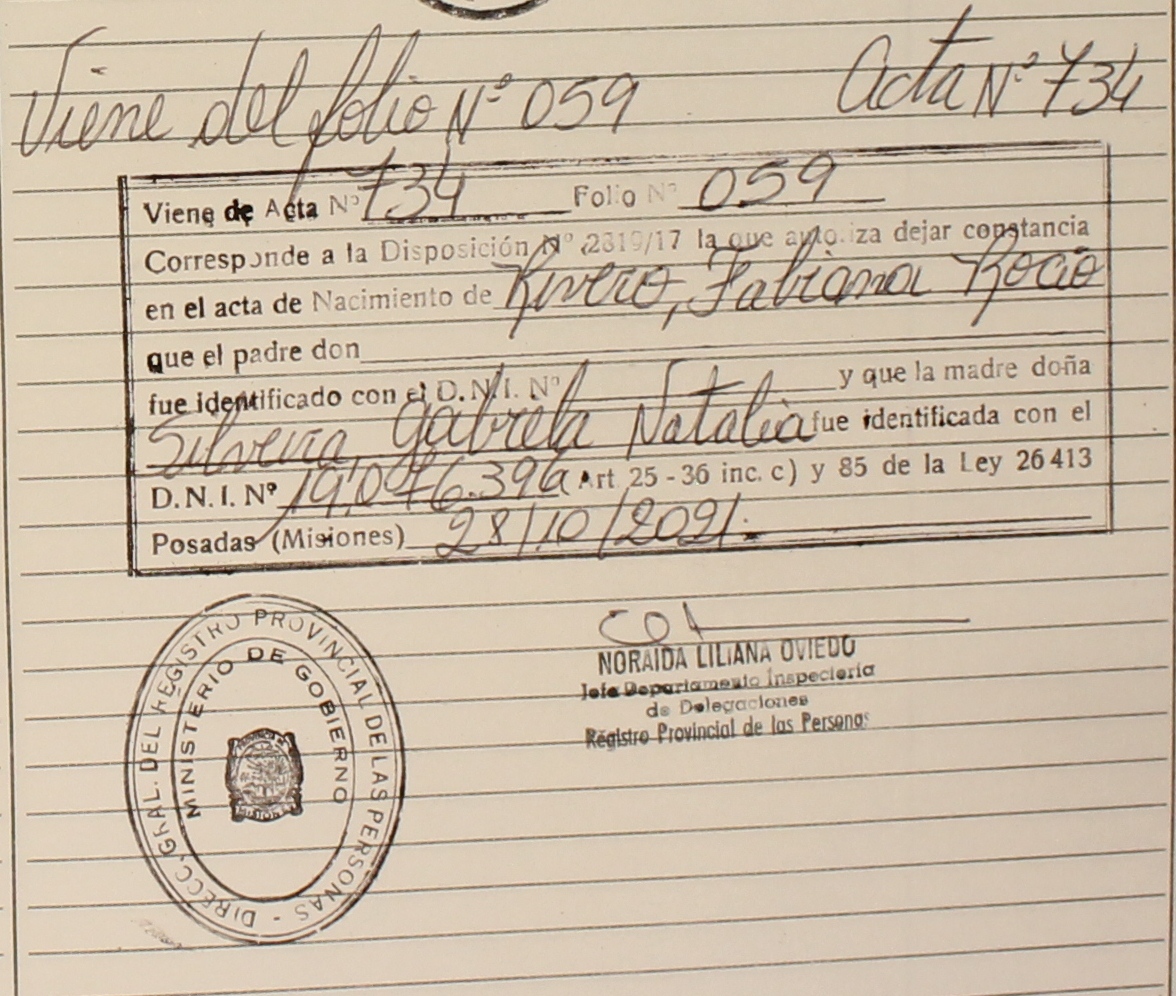 Viene del folio Nº 059 Acta Nº 734
Viene de Acta Nº 734 Folio Nº 059
Corresponde a la Disposición Nº 2819/17 la que autoriza dejar constancia
en el acta de Nacimiento de Rivero, Fabiana Rocio
que el padre don
fue identificado con el D.N.I. Nº y que la madre doña
Silveira, Gabriela Natalia fue identificada con el
D.N.I. Nº 19.076.396 Art. 25 - 36 inc. c) y 85 de la Ley 26413
Posadas (Misiones) 28/10/2021.
DIRECC. GRAL. DEL REGISTRO PROVINCIAL DE LAS PERSONAS -
MINISTERIO DE GOBIERNO
MISIONES
NORAIDA LILIANA OVIEDO
Jefe Departamento Inspectoria
de Delegaciones
Registro Provincial de las Personas